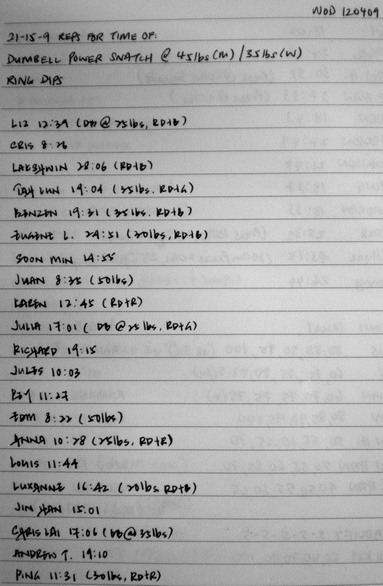 WOD 120409
21-15-9 REPS FOR TIME OF:
DUMBELL POWER SNATCH @ 45lbs(M) / 35lbs(W)
RING DIPS
LIZ 12:39 (DB @ 25lbs, RD+B)
CRIS 8:26
LAKSHWIN 28:06 (RD+B)
TAH LUN 19:04 (35lbs. RD+G)
BENZEN 19:31 (35lbs. RD+B)
EUGENE L. 24:51 (30lbs, RD+B)
SOON MIN 14:55
JUAN 8:35 (50lbs)
KAREN 12:45 (RD+R)
JULIA 17:01 (DB @ 25lbs, RD+G)
RICHARD 19:15
JULES 10:03
11:27
EDM 8:22 (50lbs)
ANNA 10:28 (25lbs, RD+R)
LOUIS 11:44
LUXANNE 16:42 (20lbs RD+B)
JIN HAN 15:01
CARIS LAI 17:06 (DB@35lbs)
ANDREW T. 19:10
PING 11:31 (30lbs, RD+R)